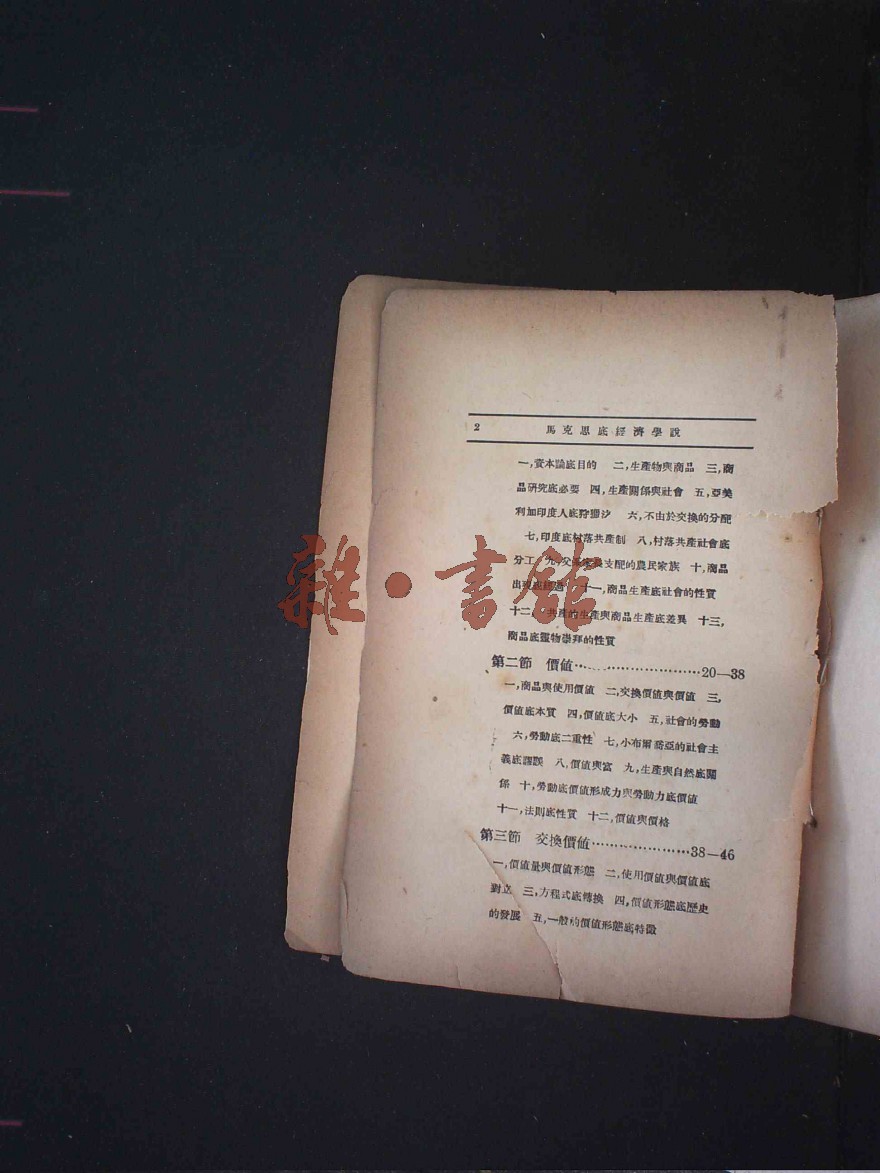 2 馬克思底經濟學說
一,資本論底目的 二,生產物與商品 三,商
品研究底必要 四,生產關係與社會 五,亞美
利加印度人底狩獵 六,不由於交換的分配
七,印度底村落共產制 八,村落共產社會底
分工 九,父 支配的農民家族 十,商品
出現底 十一,商品生產底社會的性質
十二, 共產的生產與商品生產底差異 十三,
商品底靈物崇拜的性質
第二節 價値……………………20—38
一,商品與使用價値 二,交換價値與價値 三,
價値底本質 四,價値底大小 五,社會的勞動
六,勞動底二重性 七,小布爾喬亞的社會主
義底謬誤 八,價値與富 九,生產與自然底關
係 十,勞動底價値形成力與勞動力底價値
十一,法則底性質 十二,價値與價格
第三節 交換價値………………38—46
一,價値量與價値形態 二,使用價値與價値底
對立 三,方程式底轉換 四,價値形態底歷史
的發展 五,一般的價値形態底特徵
雜·書館